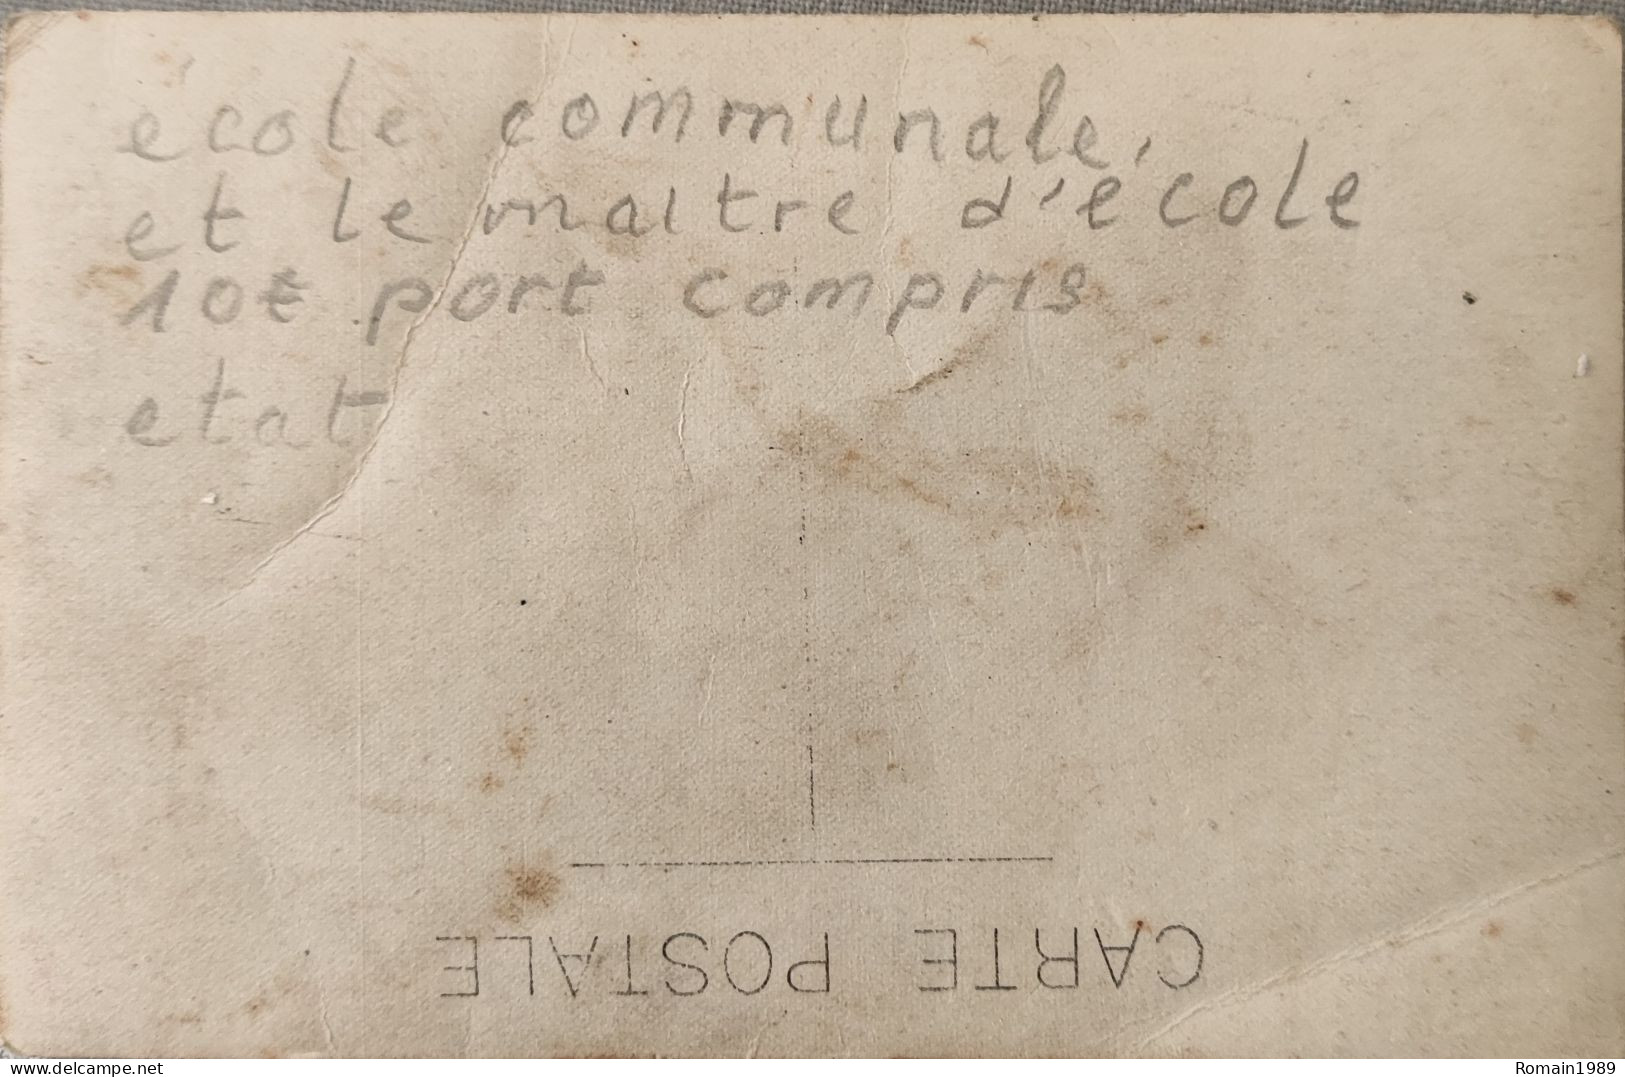 école communale,
et le maitre d'école
10€ port compris
etat
CARTE POSTALE
delcampe.net
Romain1989